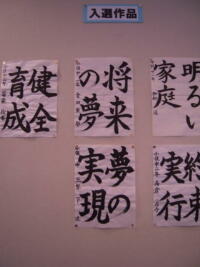 入選作品
明るい
家庭
将来
の夢
健全
育成
約束
実行
夢の
実現